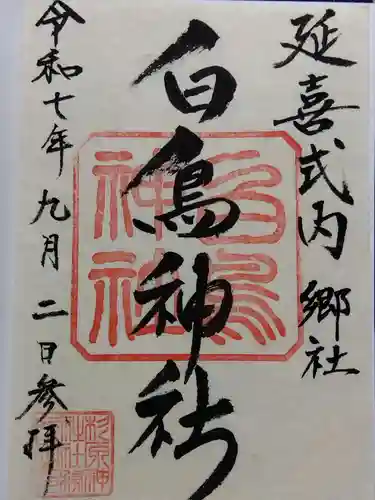 延喜式内 郷社
白鳥神社
白鳥神社
令和七年九月二日参拝